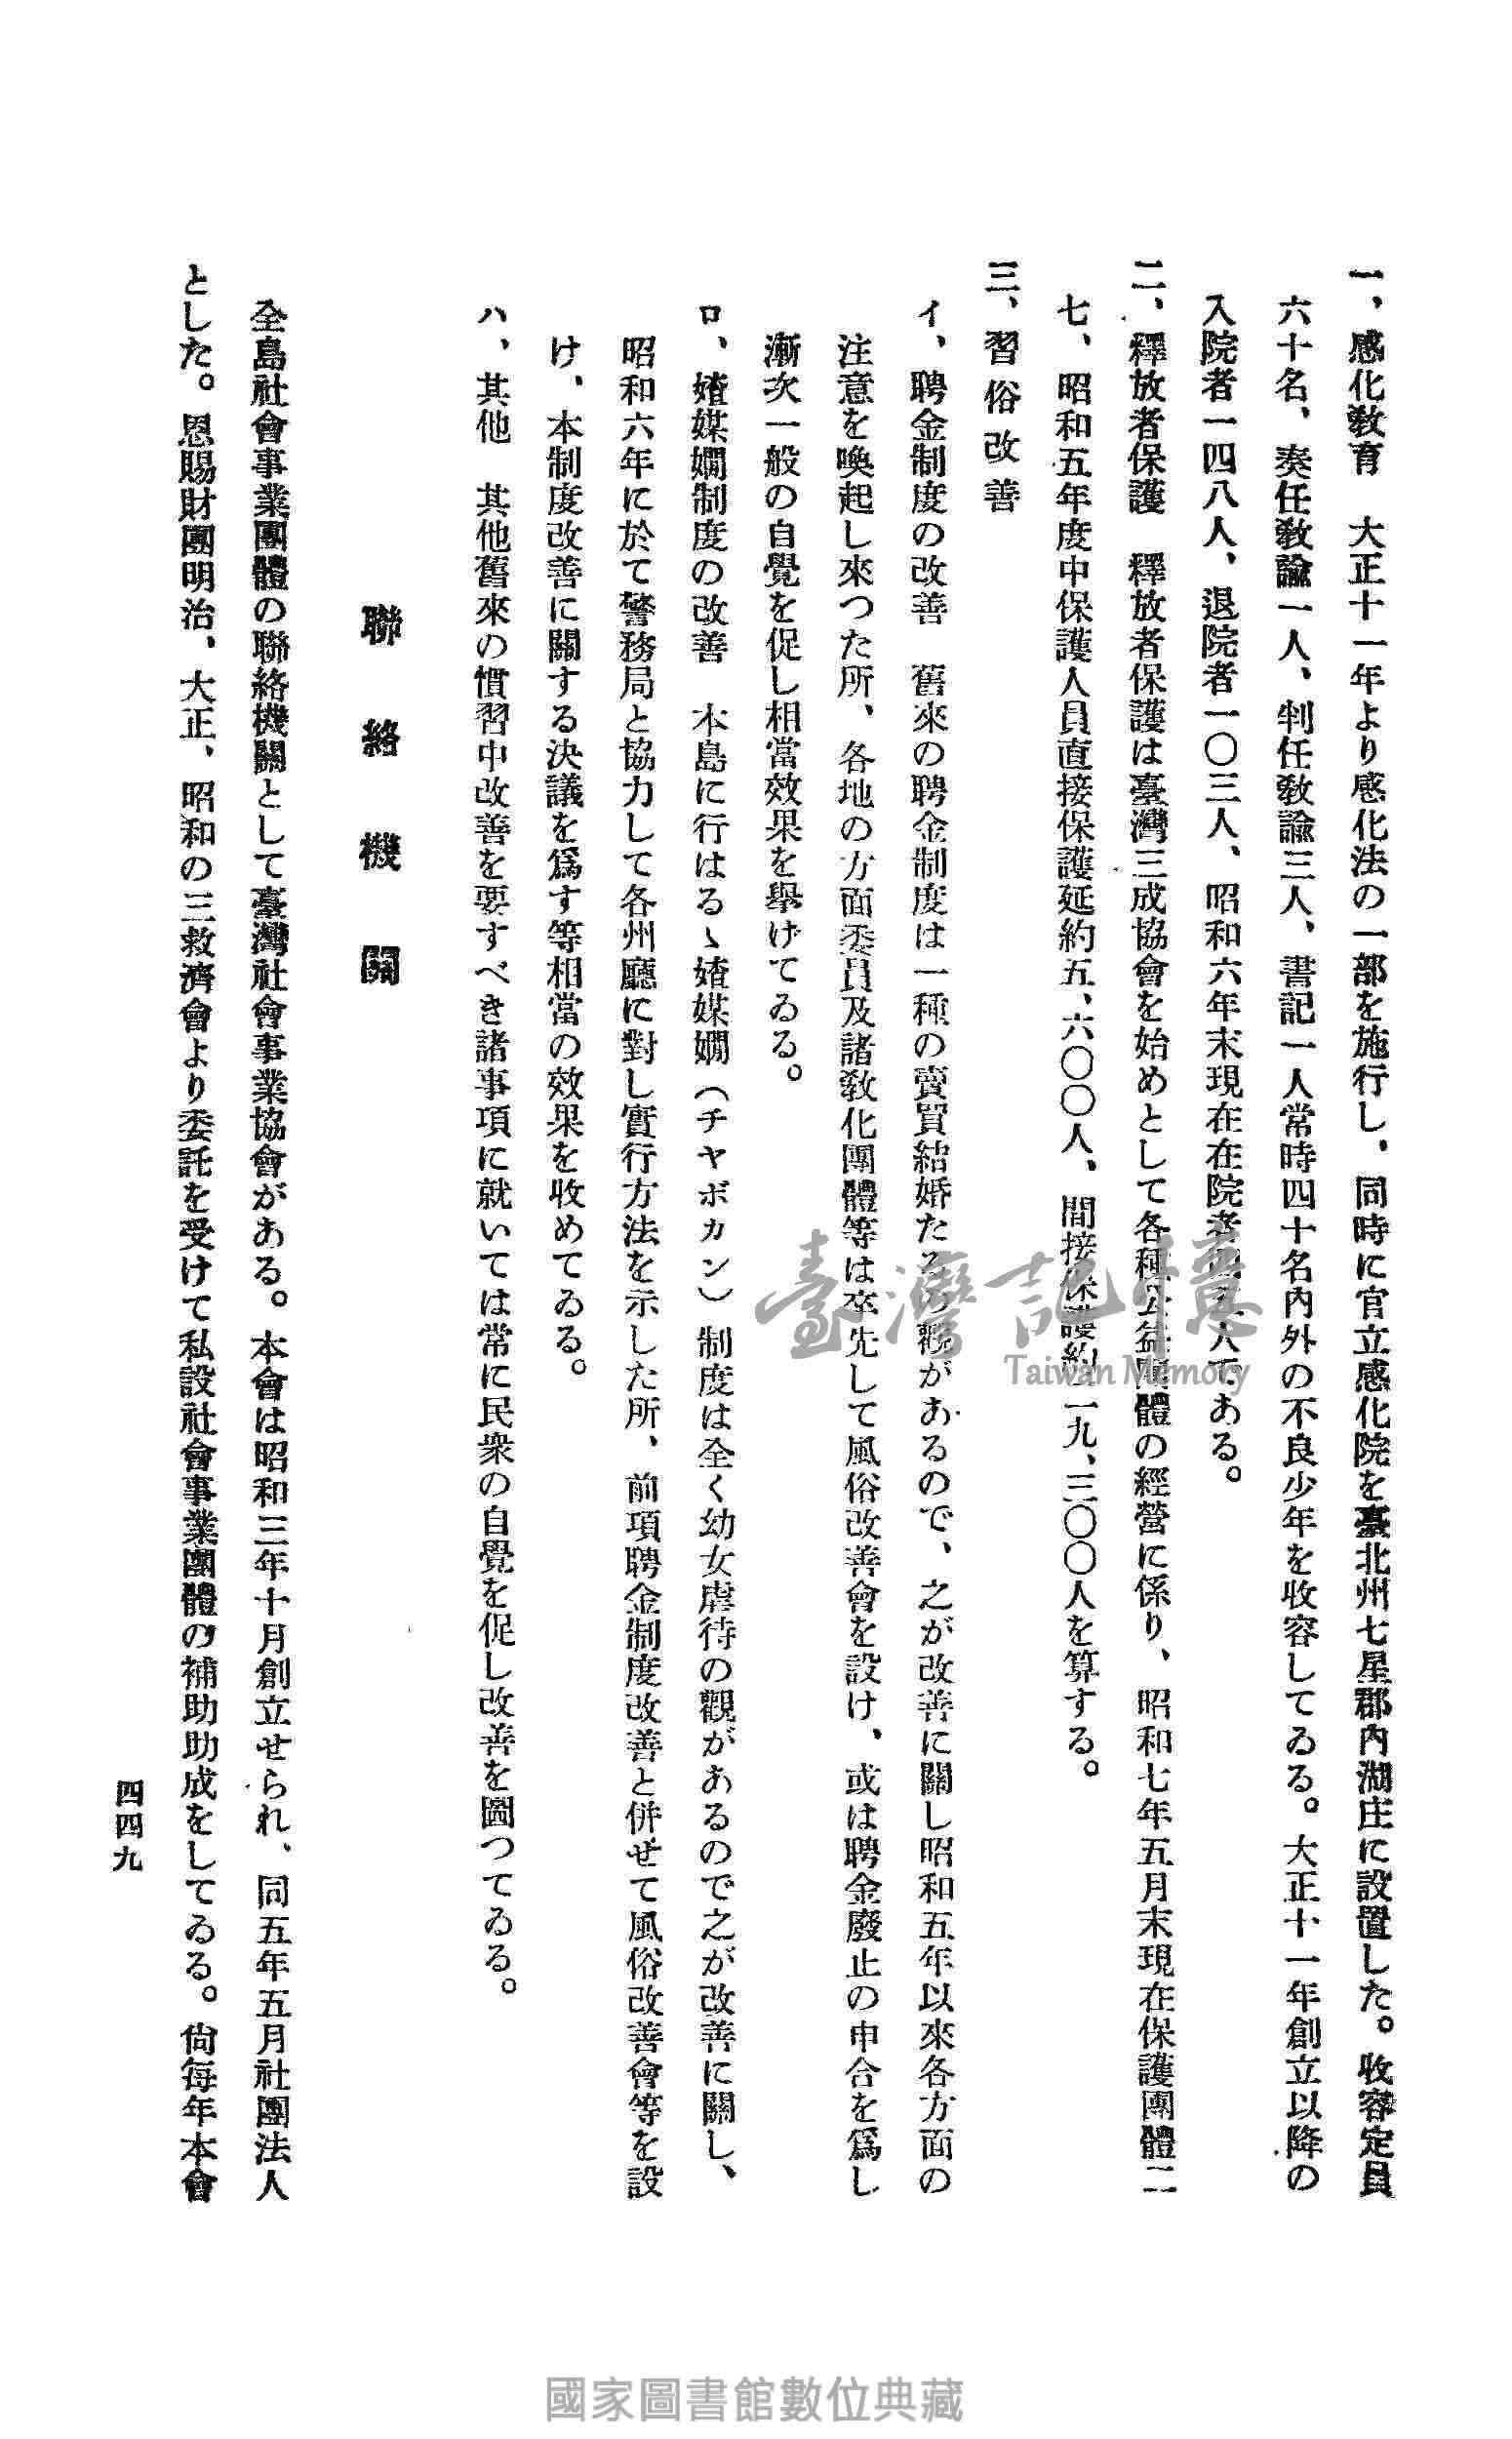 一、感化敎育　大正十一年より感化法の一部を施行し、同時に官立感化院を臺北州七星郡內湖庄に設置した。收容定員
六十名、奏任敎諭一人、判任敎諭三人、書記一人常時四十名內外の不良少年を收容してゐる。大正十一年創立以降の
入院者一四八人、退院者一〇三人、昭和六年末現在在院者四五人である。
二、釋放者保護　釋放者保護は臺灣三成協會を始めとして各種公益團體の經營に係り、昭和七年五月末現在保護團體二
七、昭和五年度中保護人員直接保護延約五、六〇〇人、間接保護約一九、三〇〇人を算する。
三、習俗改善
イ、聘金制度の改善　舊來の聘金制度は一種の賣買結婚たるの觀があるので、之が改善に關し昭和五年以來各方面の
注意を喚起し來つた所、各地の方面委員及諸敎化團體等は卒先して風俗改善會を設け、或は聘金廢止の申合を爲し
漸次一般の自覺を促し相當效果を擧げてゐる。
ロ、媎媒嫺制度の改善　本島に行はるゝ媎媒嫺（チヤボカン）制度は全く幼女虐待の觀があるので之が改善に關し、
昭和六年に於て警務局と協力して各州廳に對し實行方法を示した所、前項聘金制度改善と併せて風俗改善會等を設
け、本制度改善に關する決議を爲す等相當の效果を收めてゐる。
ハ、其他　其他舊來の慣習中改善を要すべき諸事項に就いては常に民衆の自覺を促し改善を圖つてゐる。
聯絡機關
全島社會事業團體の聯絡機關として臺灣社會事業協會がある。本會は昭和三年十月創立せられ、同五年五月社團法人
とした。恩賜財團明治、大正、昭和の三救濟會より委託を受けて私設社會事業團體の補助助成をしてゐる。尙每年本會
四四九
臺灣記憶
Taiwan Memory
國家圖書館數位典藏